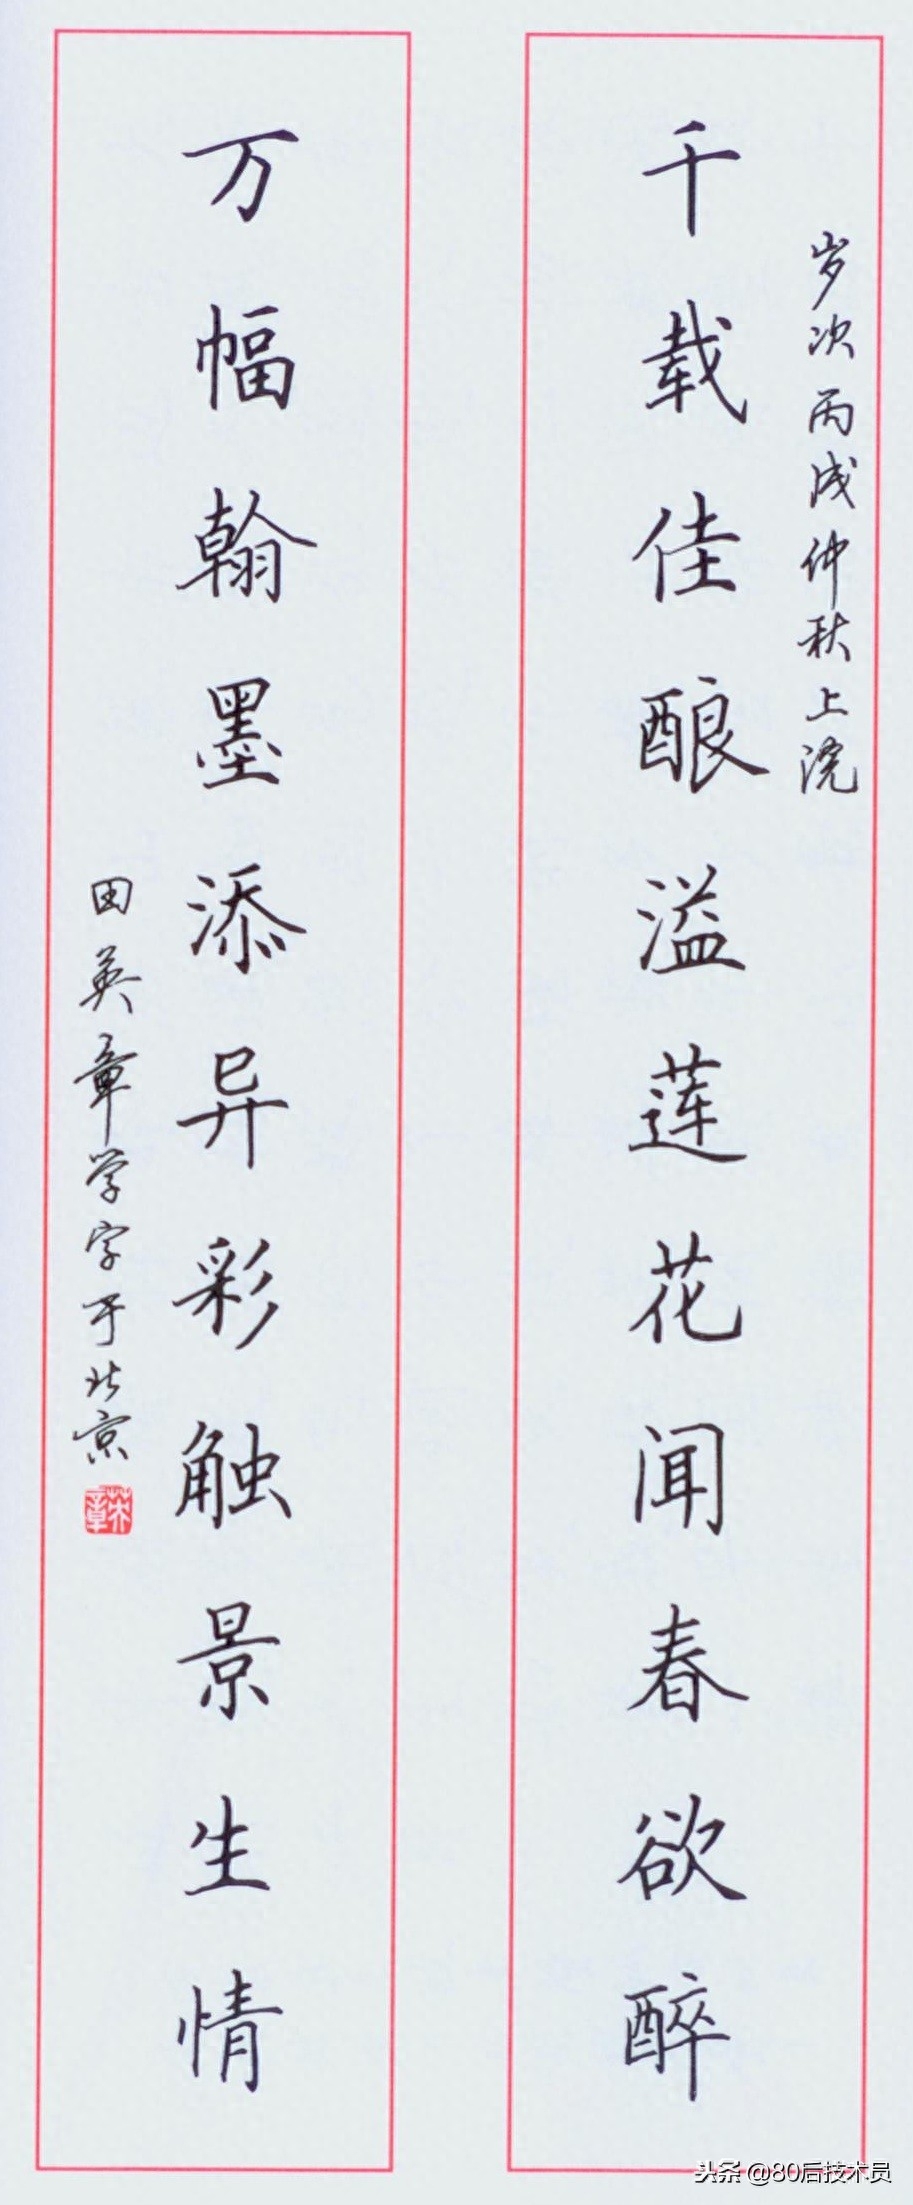 岁次丙戌仲秋上浣
千载佳酿溢莲花闻春欲醉
万幅翰墨添异彩触景生情
田英章学字于北京
英章
头条 @80后技术员